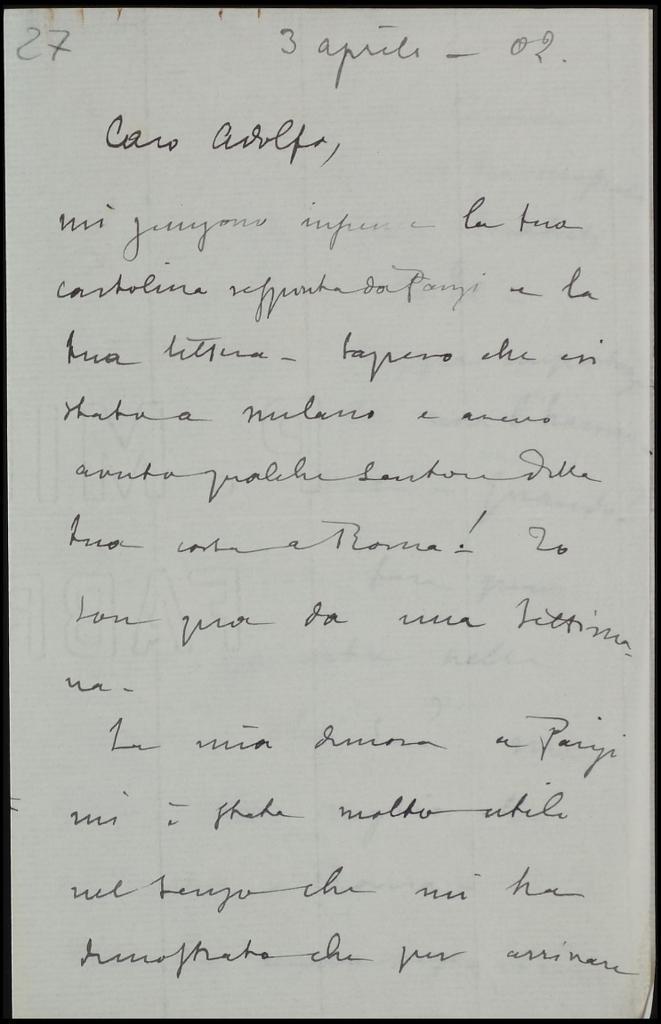 27
3 aprile - 02.
Caro Adolfo,
mi giungono insieme la tua
cartolina respinta da Parigi e la
tua lettera - sapevo che eri
stato a Milano e avevo
avuto qualche sentore della
tua corsa a Roma! Io
son qua da una settima-
na -
La mia dimora a Parigi
mi è stata molto utile
nel senso che mi ha
dimostrato che per arrivare